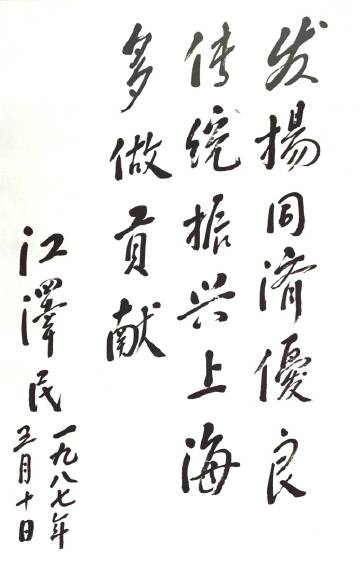 发揚同濟優良
传统振兴上海
多做貢献
江澤民
一九八七年
五月十日